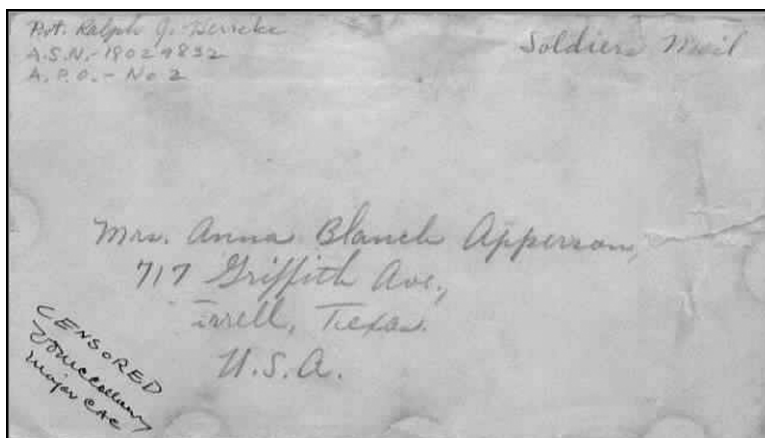 Pvt. Ralph J.
A.S.N.-18029832
A.P.O.- No 2
Soldiers Mail
Mrs. Anna Blanch Apperson,
717 Griffith Ave.,
Terrell, Texas.
U.S.A.
CENSORED
Major CAC